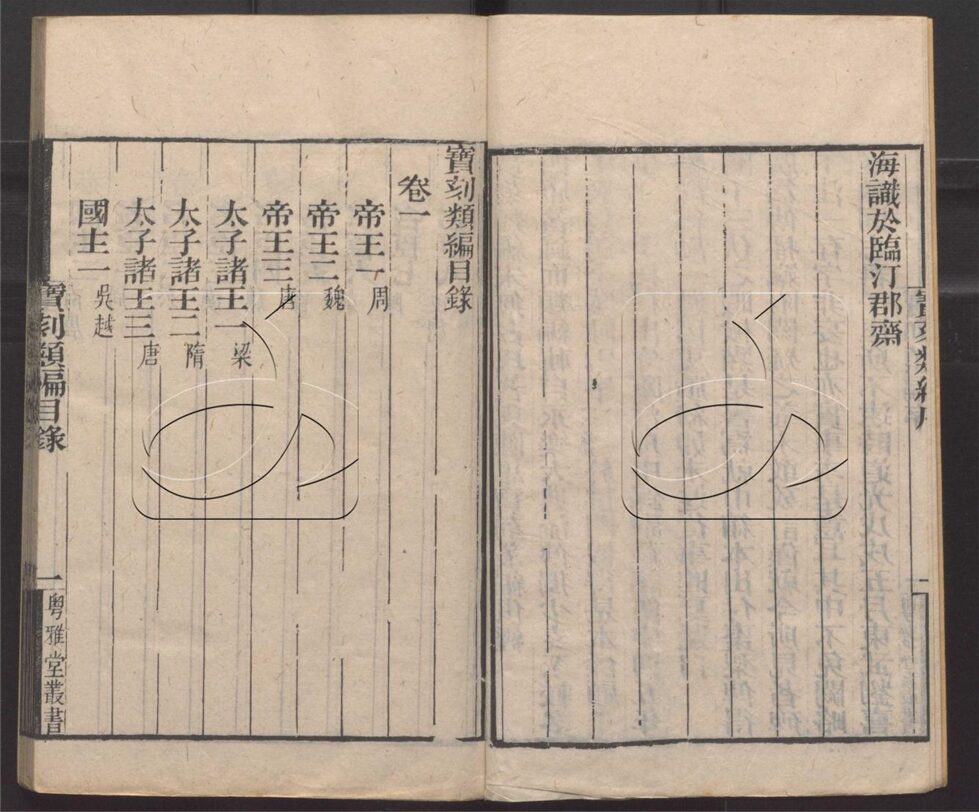 海識於臨汀郡齋
寶刻類編目錄
卷一
帝王一 周
帝王二 魏
帝王三 唐
太子諸王一 梁
太子諸王二 隋
太子諸王三 唐
國主一 吳越
寶刻類編目錄
一
粵雅堂叢書